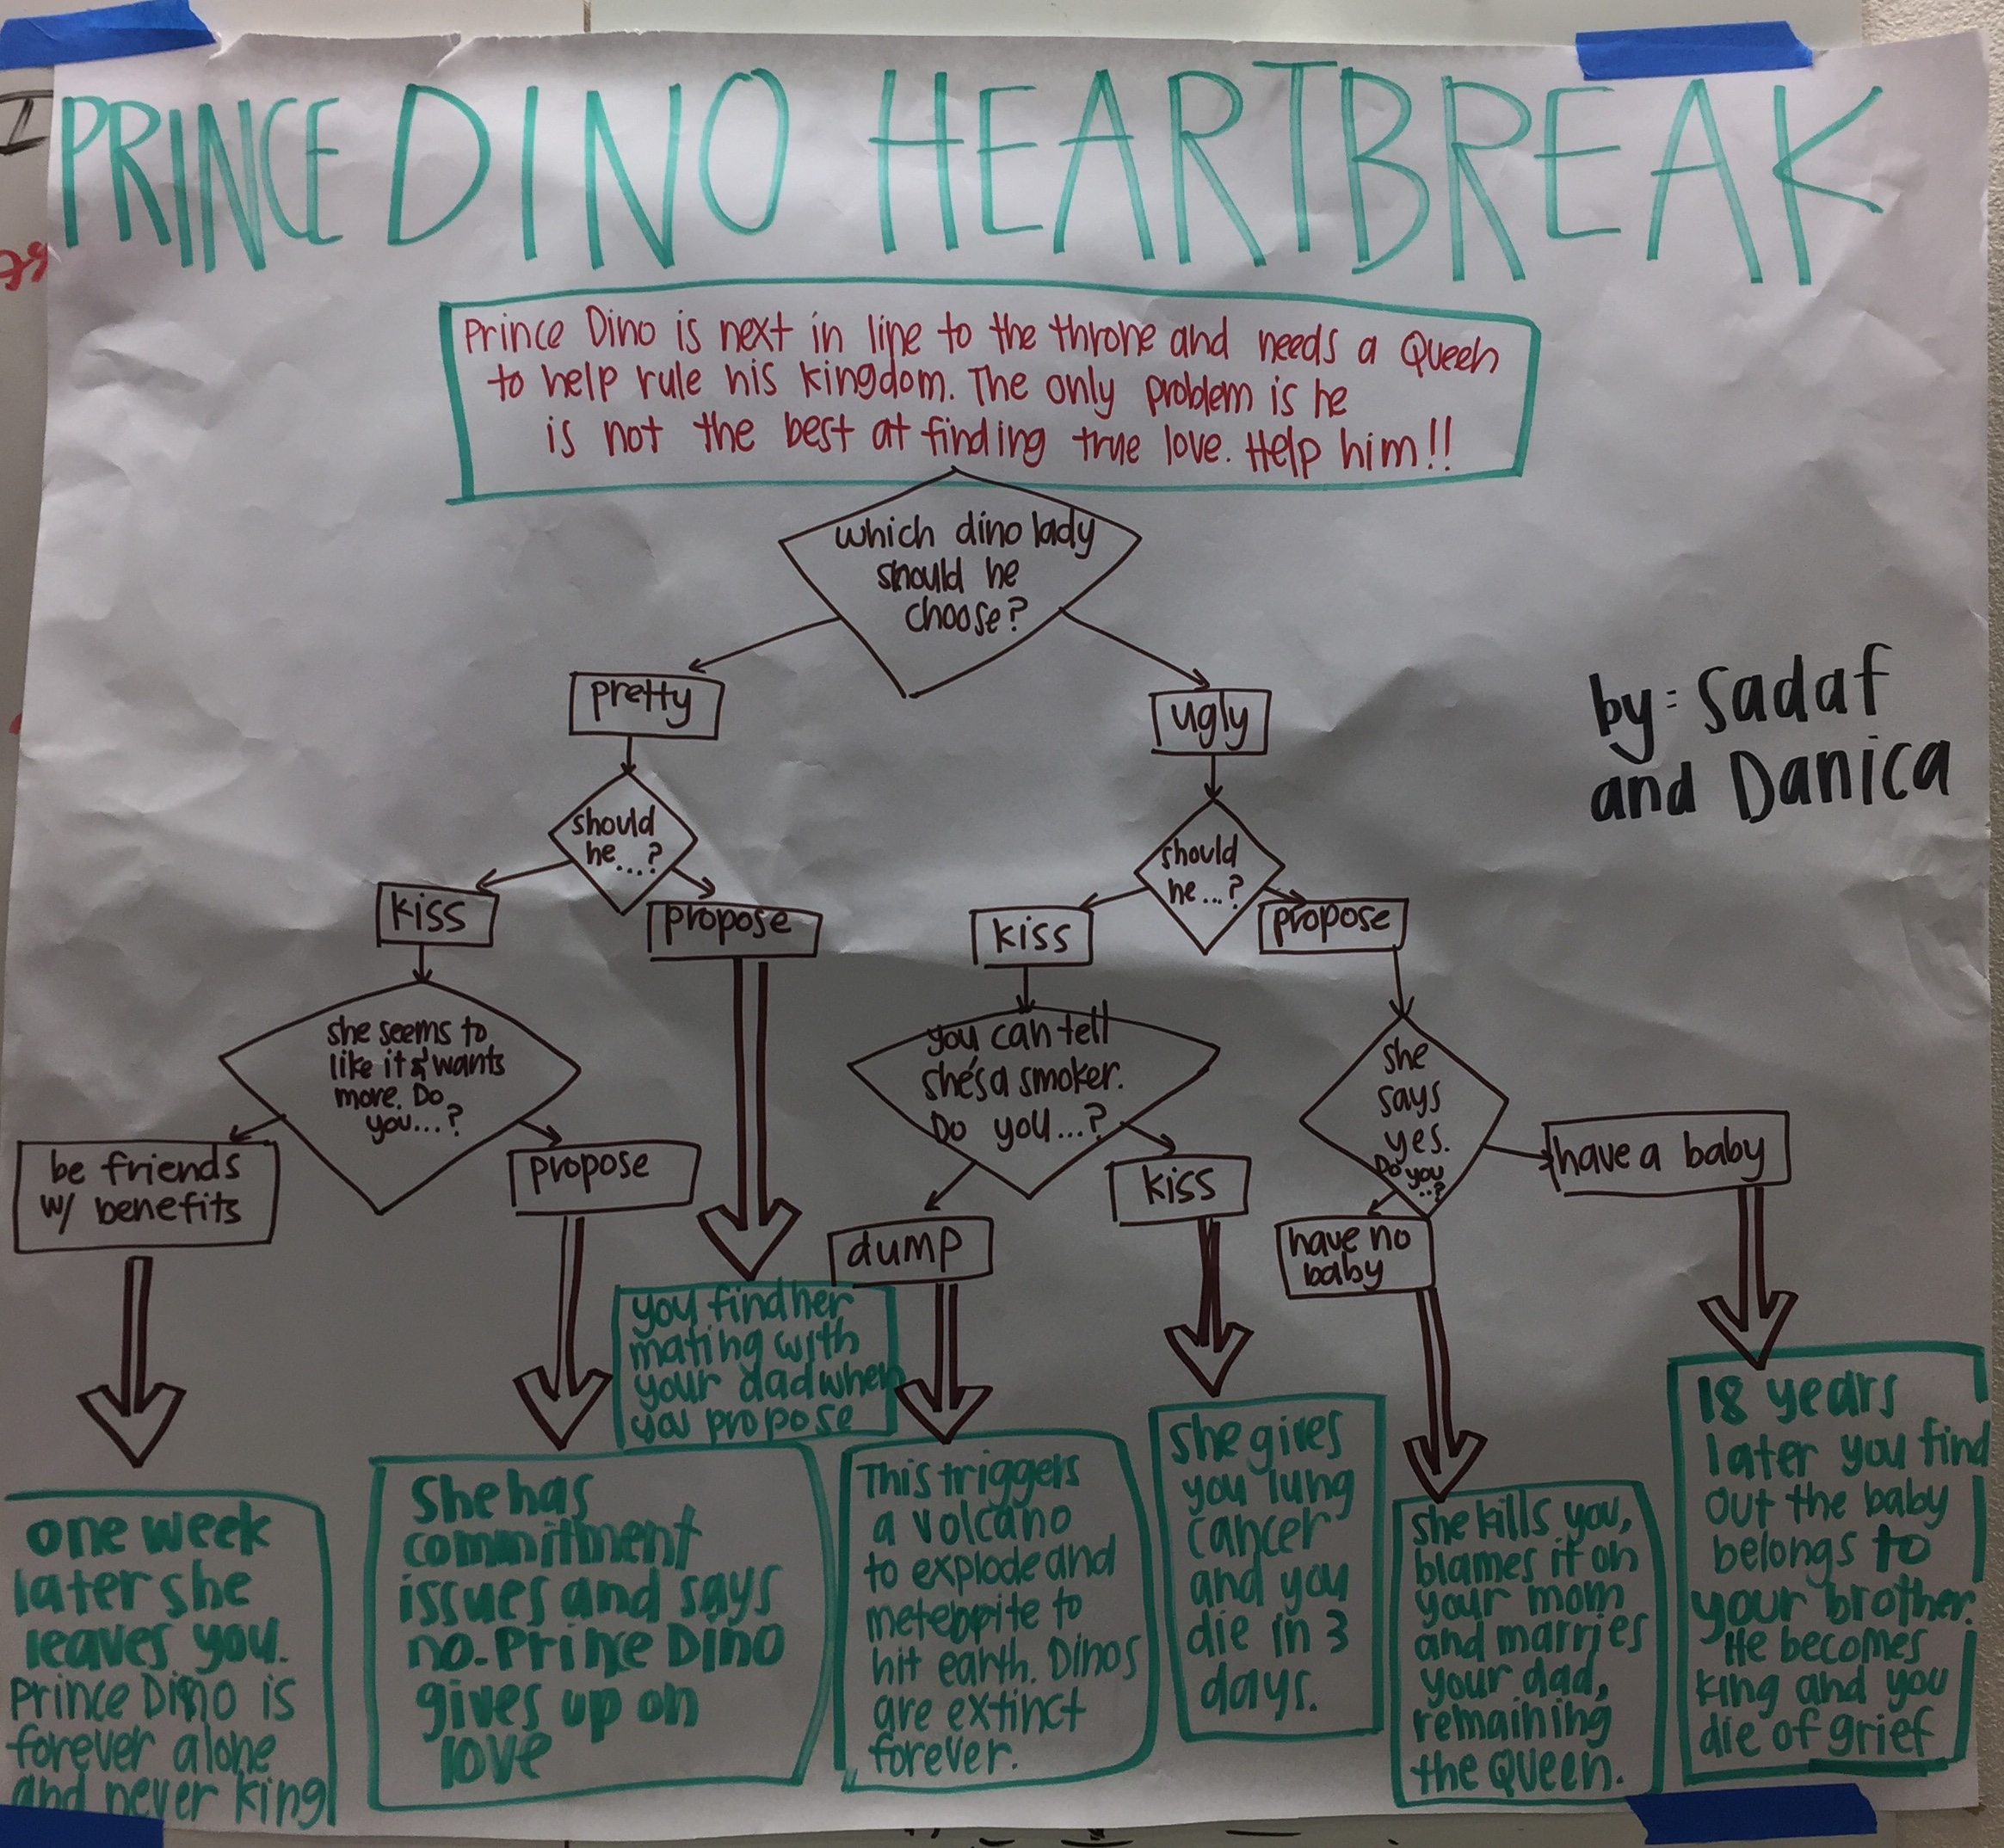 PRINCE DINO HEARTBREAK
Prince Dino is next in line to the throne and needs a Queen
to help rule his kingdom. The only problem is he
is not the best at finding true love. Help him!!
which dino lady
should he
choose?
pretty
ugly
by: Sadaf
and Danica
should
he...?
should
he...?
kiss
propose
kiss
propose
she seems to
like it & wants
more. Do
you...?
you can tell
she's a smoker.
Do you...?
she
says
yes.
Do you
..?
be friends
w/ benefits
propose
dump
kiss
have no
baby
have a baby
you find her
mating with
your dad when
you propose
one week
later she
leaves you.
Prince Dino is
forever alone
and never king
She has
commitment
issues and says
no. Prince Dino
gives up on
love
This triggers
a volcano
to explode and
to
hit earth. Dinos
are extinct
forever.
she gives
you lung
cancer
and you
die in 3
days.
she kills you,
blames it on
your mom
and marries
your dad,
remaining
the Queen.
18 years
later you find
out the baby
belongs to
your brother.
He becomes
king and you
die of grief